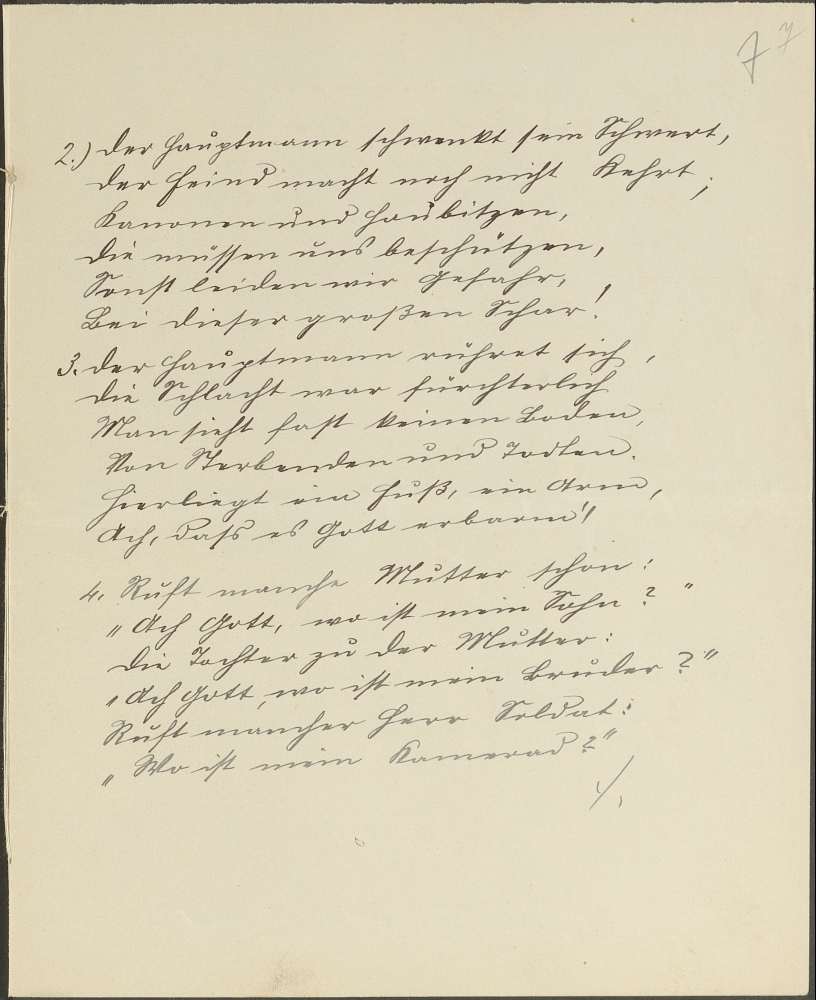 7 7
2.) Der Hauptmann schwenkt sein Schwert,
Der Feind macht noch nicht Kehrt;
Kanonen und Haubitzen,
Die müssen uns beschützen,
Sonst leiden wir Gefahr,
Bei dieser großen Schar!
3. Der Hauptmann rühret sich,
Die Schlacht war fürchterlich
Man sieht fast keinen Boden,
Von Sterbenden und Todten.
Hier liegt ein Fuß, ein Arm,
Ach, dass es Gott erbarm'!
4. Ruft manche Mutter schon:
"Ach Gott, wo ist mein Sohn?"
Die Tochter zu der Mutter:
"Ach Gott, wo ist mein Bruder?"
Ruft mancher Herr Soldat:
"Wo ist mein Kamerad?"